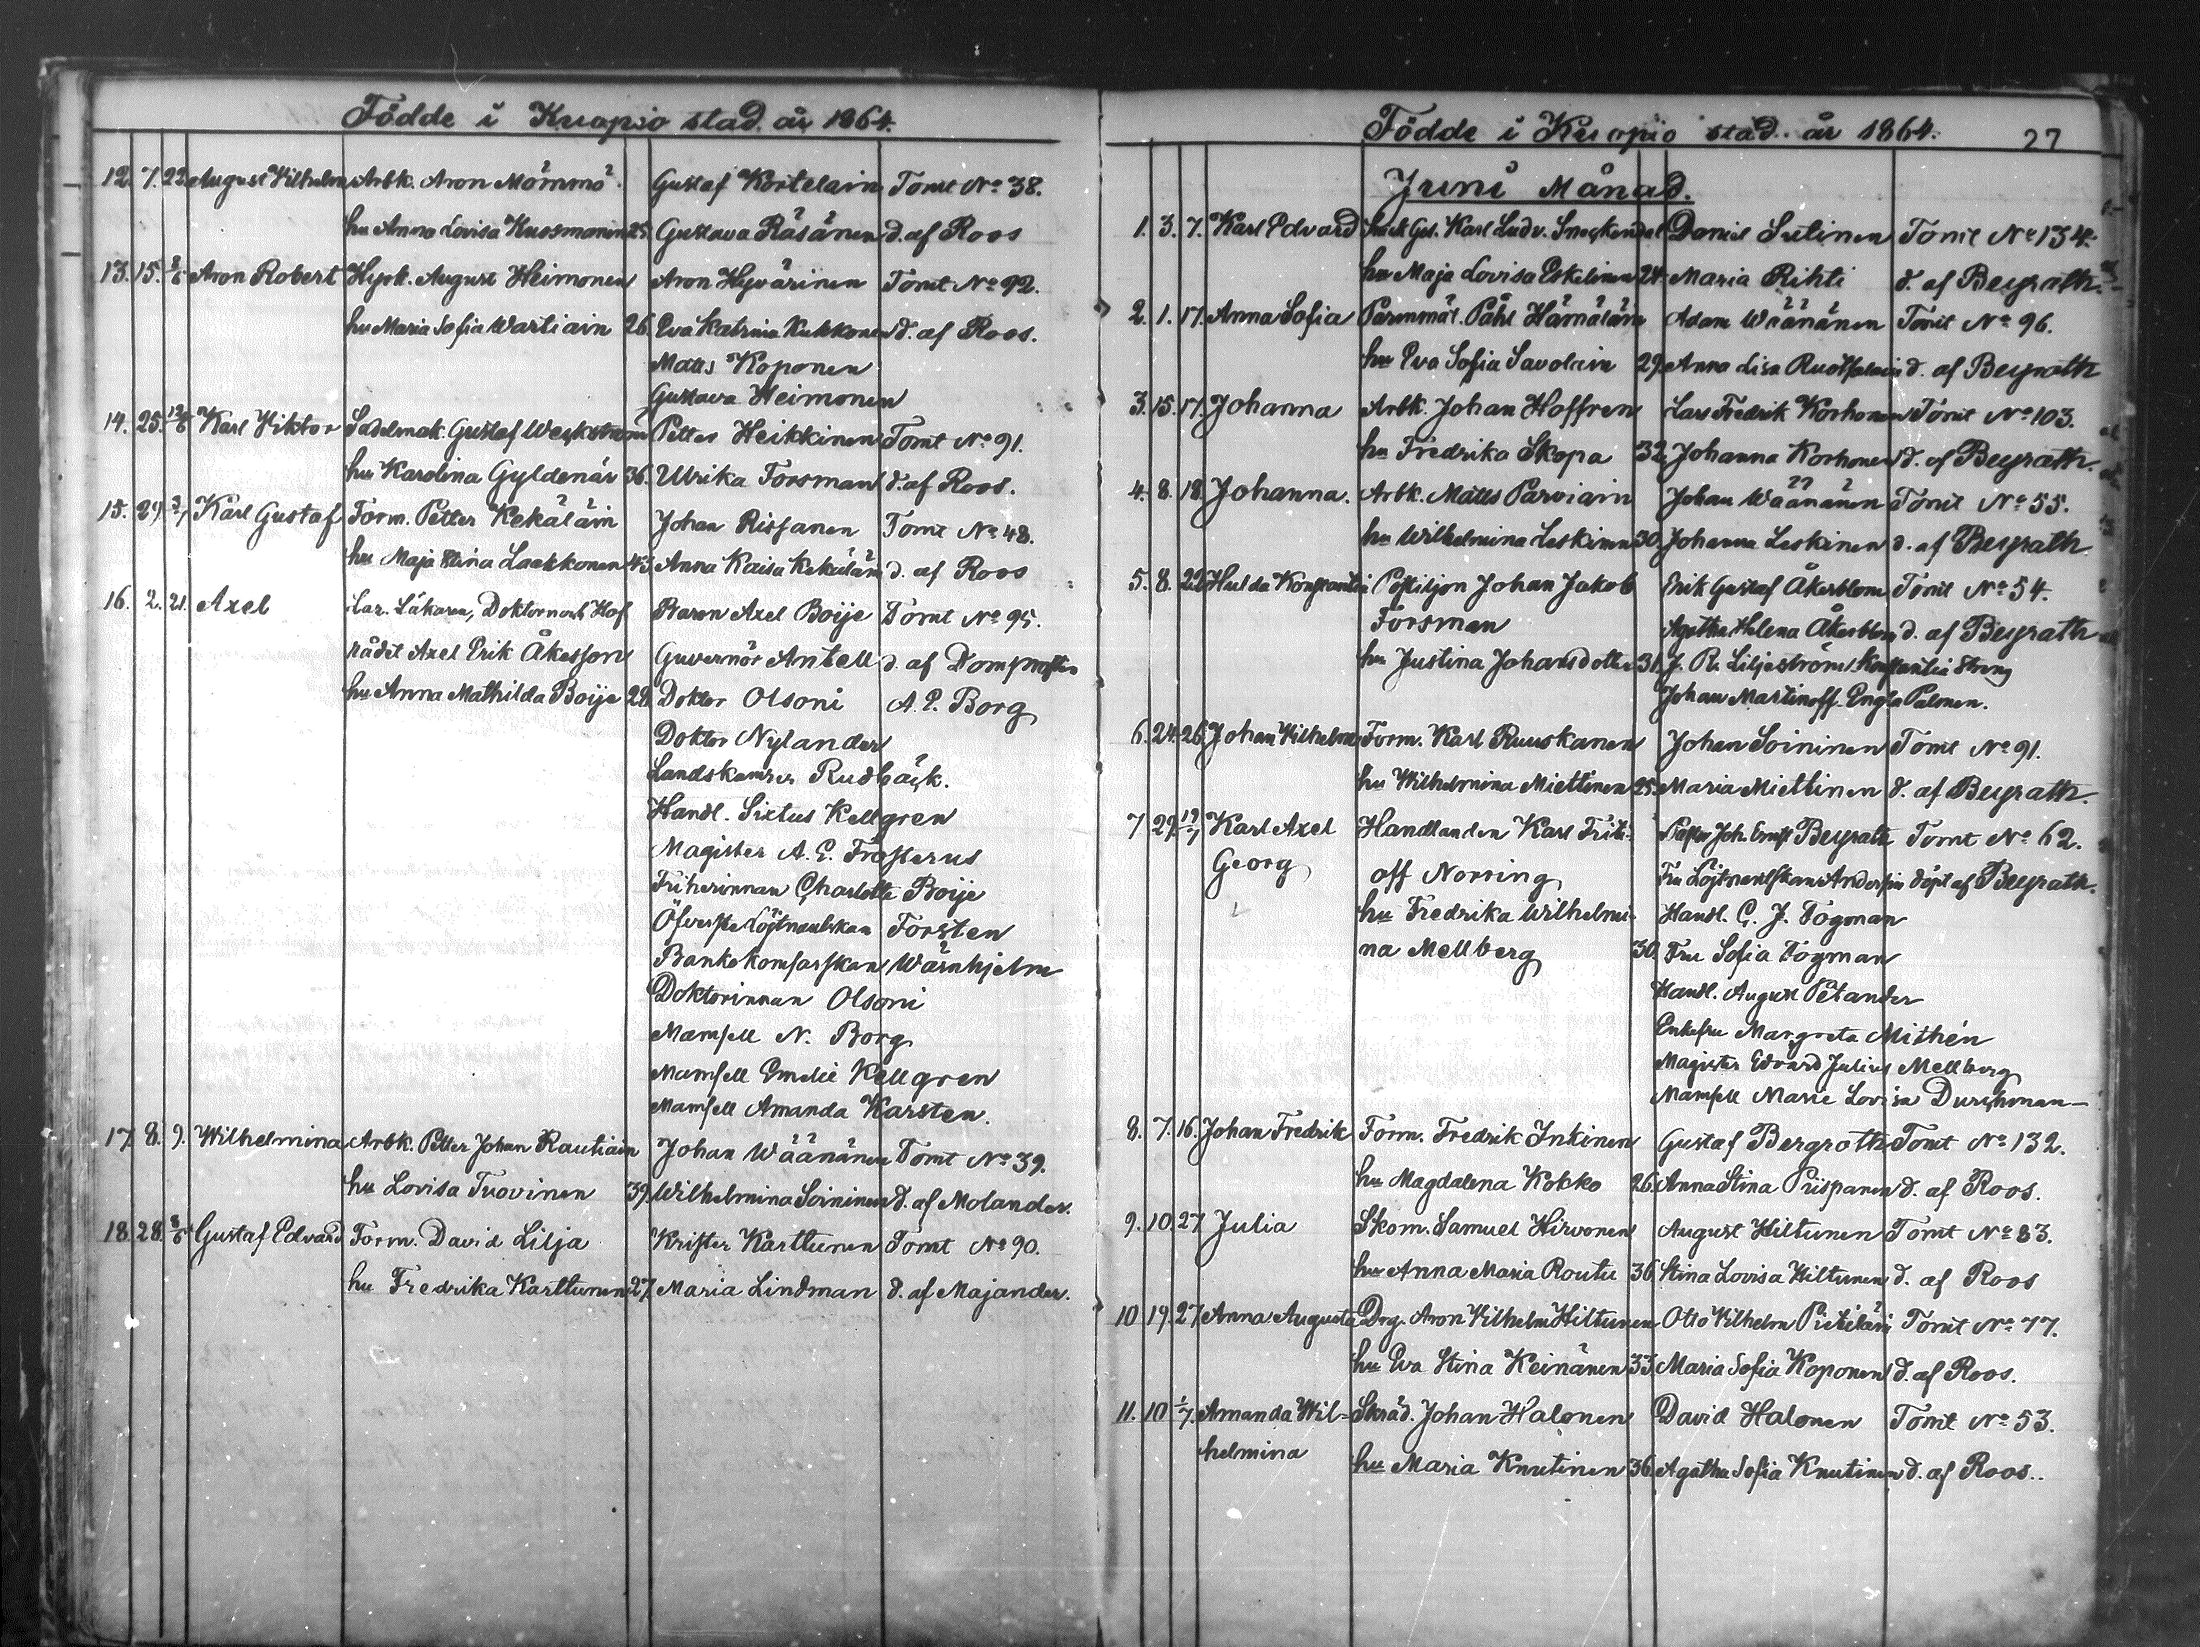 Födde i Kuopio stad. år 1864.
12. 7. 22. August Wilhelm Arbk. Aron Mömmö Gustaf Kortelain Tomt No 38.
hu Anna Lovisa Kuosmanen 25. Gustava Räsänen d. af Roos
13. 15. 5/6 Aron Robert Hyrk. August Heimonen Aron Hyvärinen Tomt No 92.
hu Maria Sofia Wartiain 26. Eva Katrina Kukkonen d. af Roos.
Matts Koponen
Gustava Heimonen
14. 25. 12/6 Karl Viktor Sadelmak. Gustaf Weckström Petter Heikkinen Tomt No 91.
hu Karolina Gyldenär 36. Ulrika Forsman d. af Roos.
15. 29. 3/7 Karl Gustaf Form. Petter Kekäläin Johan Rissanen Tomt No 48.
hu Maja Stina Laakkonen 43. Anna Kaisa Kekäläin d. af Roos
16. 2. 21. Axel Läkaren, Doktorn och Hof Baron Axel Boije Tomt No 95.
rådet Axel Erik Åkesson Guvernör Antell d. af Domprosten
hu Anna Mathilda Boije 28. Doktor Olsoni A. E. Borg
Doktor Nylander
Landskamrer Rudbäck.
Handl. Sixtus Kellgren
Magister A. E. Frosterus
Friherinnan Charlotte Boije
Öfverste Löjtnantskan Forsten
Bankokomisarskan Wärnhjelm
Doktorinnan Olsoni
Mamsell N. Borg
Mamsell Emelie Kellgren
Mamsell Amanda Karsten.
17. 8. 9. Wilhelmina Arbk. Petter Johan Rautiain Johan Wäänänen Tomt No 39.
hu Lovisa Tuovinen 39. Wilhelmina Soininen d. af Molander.
18. 28. 5/6 Gustaf Edvard Form. David Lilja Krister Karttunen Tomt No 90.
hu Fredrika Karttunen 27. Maria Lindman d. af Majander.
Födde i Kuopio stad. år 1864. 27
Juni Månad.
1. 3. 7. Karl Edvard Karl Ludv. Daniel Sutinen Tomt No 134.
hu Maja Lovisa Eskelinen 24. Maria Rihti d. af Beyrath.
2. 1. 17. Anna Sofia Påhl Hämäläin Adam Wäänänen Tomt No 96.
hu Eva Sofia Savolain 29. Anna Lisa d. af Beyrath
3. 15. 17. Johanna Arbk. Johan Hoffren Lars Fredrik Korhonen Tomt No 103.
hu Fredrika Skopa 32. Johanna Korhonen d. af Beyrath.
4. 8. 18. Johanna. Arbk. Matts Parviain Johan Wäänänen Tomt No 55.
hu Wilhelmina Leskinen 30. Johanna Leskinen d. af Beyrath
5. 8. 22. Hulda Konstantia Postiljon Johan Jakob Erik Gustaf Åkerblom Tomt No 54.
Forsman Agatha Helena Åkerblom d. af Beyrath
hu Justina Johansdotter 31. J. R. Liljeström Konstantia Streng
Johan Martinoff. Engla Palonen.
6. 24. 26. Johan Wilhelm Form. Karl Ruuskanen Johan Soininen Tomt No 91.
hu Wilhelmina Miettinen 25. Maria Miettinen d. af Beyrath.
7 29. 19/7 Karl Axel Handlanden Karl Frit- Pastor Joh. Ernst Beyrath Tomt No 62.
Georg off Norring Fru Löjtnantskan döpt af Beyrath.
hu Fredrika Wilhelmi- Handl. C. J. Fogman
na Mellberg 30. Fru Sofia Fogman
Handl. August Petander
Enkefru Margreta Mithén
Magister Edvard Julius Mellberg
Mamsell Marie Lovisa Durchman
8. 7. 16. Johan Fredrik Form. Fredrik Inkinen Gustaf Bergroth Tomt No 132.
hu Magdalena Kokko 26. Anna Stina Piispanen d. af Roos.
9. 10. 27 Julia Skom. Samuel Hirvonen August Hiltunen Tomt No 83.
hu Anna Maria Routu 36 Stina Lovisa Hiltunen d. af Roos
10 19. 27 Anna Augusta Drg. Aron Wilhelm Hiltunen Otto Wilhelm Tomt No 77.
hu Eva Stina Keinänen 33. Maria Sofia Koponen d. af Roos.
11. 10 1/7. Amanda Wil- Skräd. Johan Halonen David Halonen Tomt No 53.
helmina hu Maria Knutinen 36. Agatha Sofia Knutinen d. af Roos.